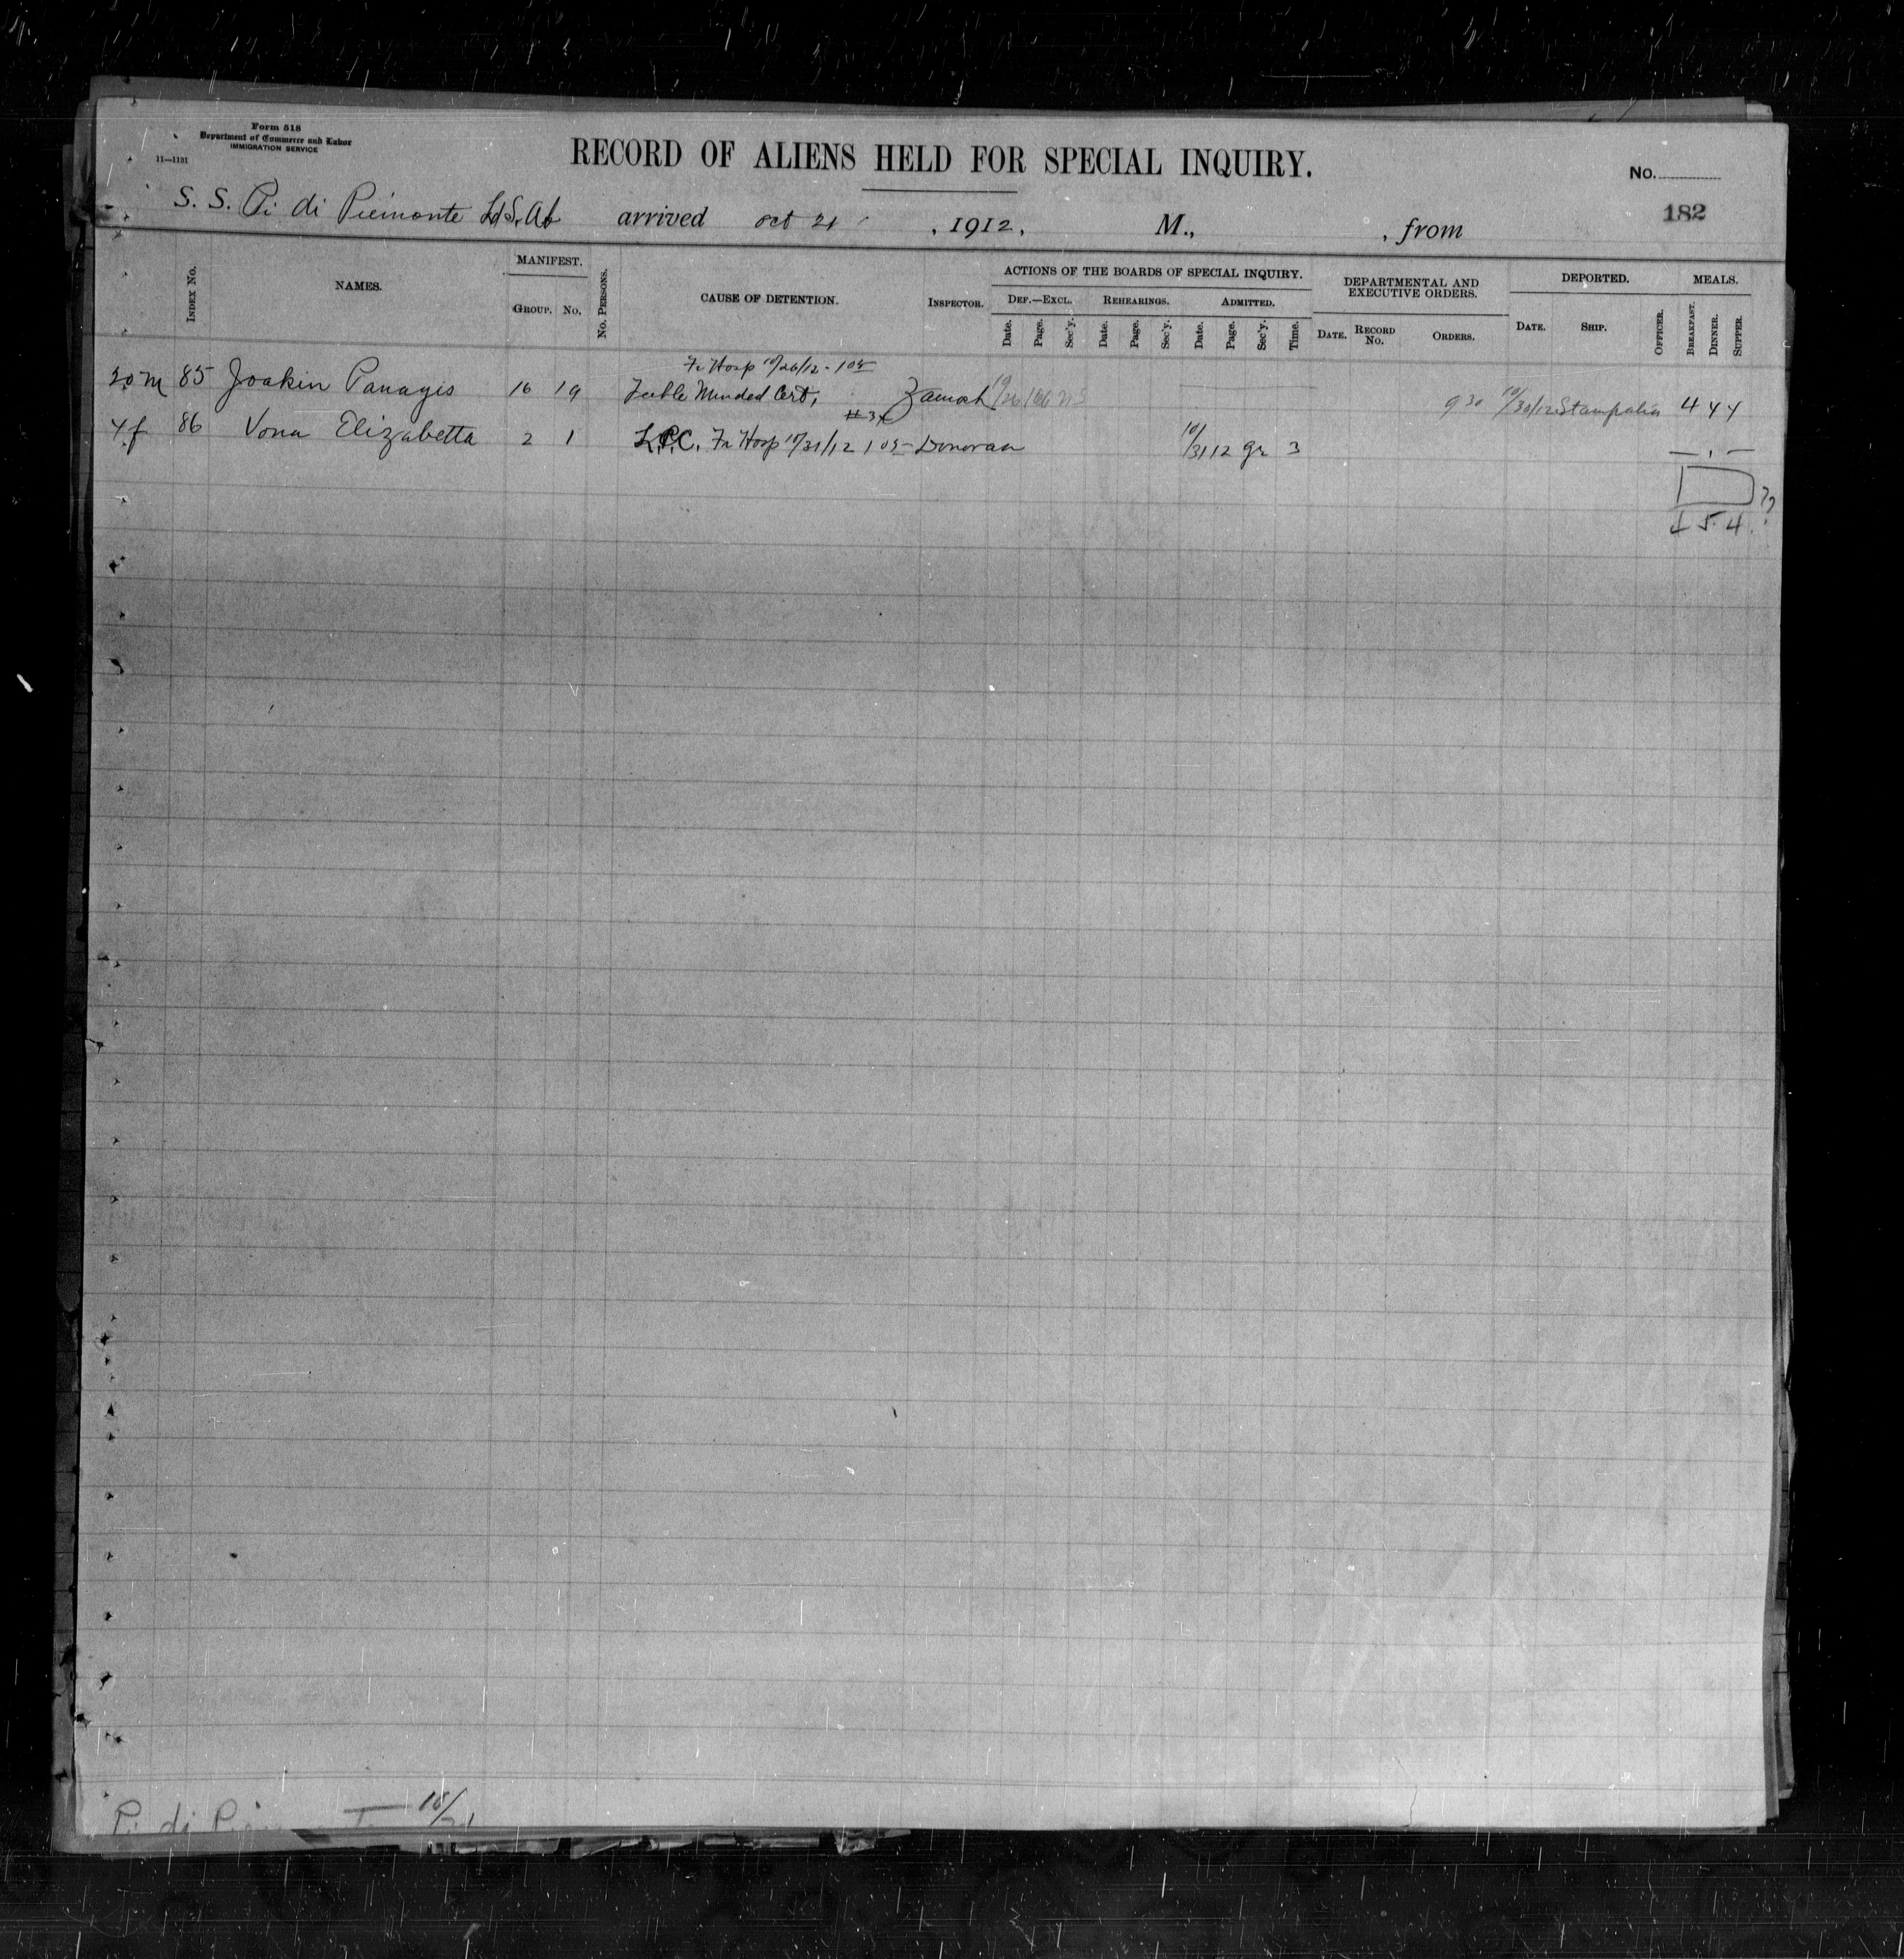 Form 518
Department of Commerce and Labor
IMMIGRATION SERVICE
11—1131
RECORD OF ALIENS HELD FOR SPECIAL INQUIRY.
No.
182
S. S. Pi di Piemonte arrived Oct 21, 1912, M., , from
INDEX No.
NAMES.
MANIFEST.
GROUP. No.
No. PERSONS.
CAUSE OF DETENTION.
INSPECTOR.
ACTIONS OF THE BOARDS OF SPECIAL INQUIRY.
DEF.—EXCL. REHEARINGS. ADMITTED.
Date. Page. Sec'y. Date. Page. Sec'y. Date. Page. Sec'y. Time.
DEPARTMENTAL AND EXECUTIVE ORDERS.
DATE. RECORD No. ORDERS.
DEPORTED.
DATE. SHIP. OFFICER.
MEALS.
BREAKFAST. DINNER. SUPPER.
Fr Hosp 10/26/12 - 1 05
20 m 85 Joakin Panagis 16 19 Feeble Minded Cert, Zamosh 10/26 930 10/30/12 Stampalia 4 4 4
#3
4 f 86 Vona Elizabetta 2 1 L.P.C. Fr Hosp 10/31/12 1 05 Donovan 10/31 12 gr 3 — 1 —
4 5 4
Pi di 10/21